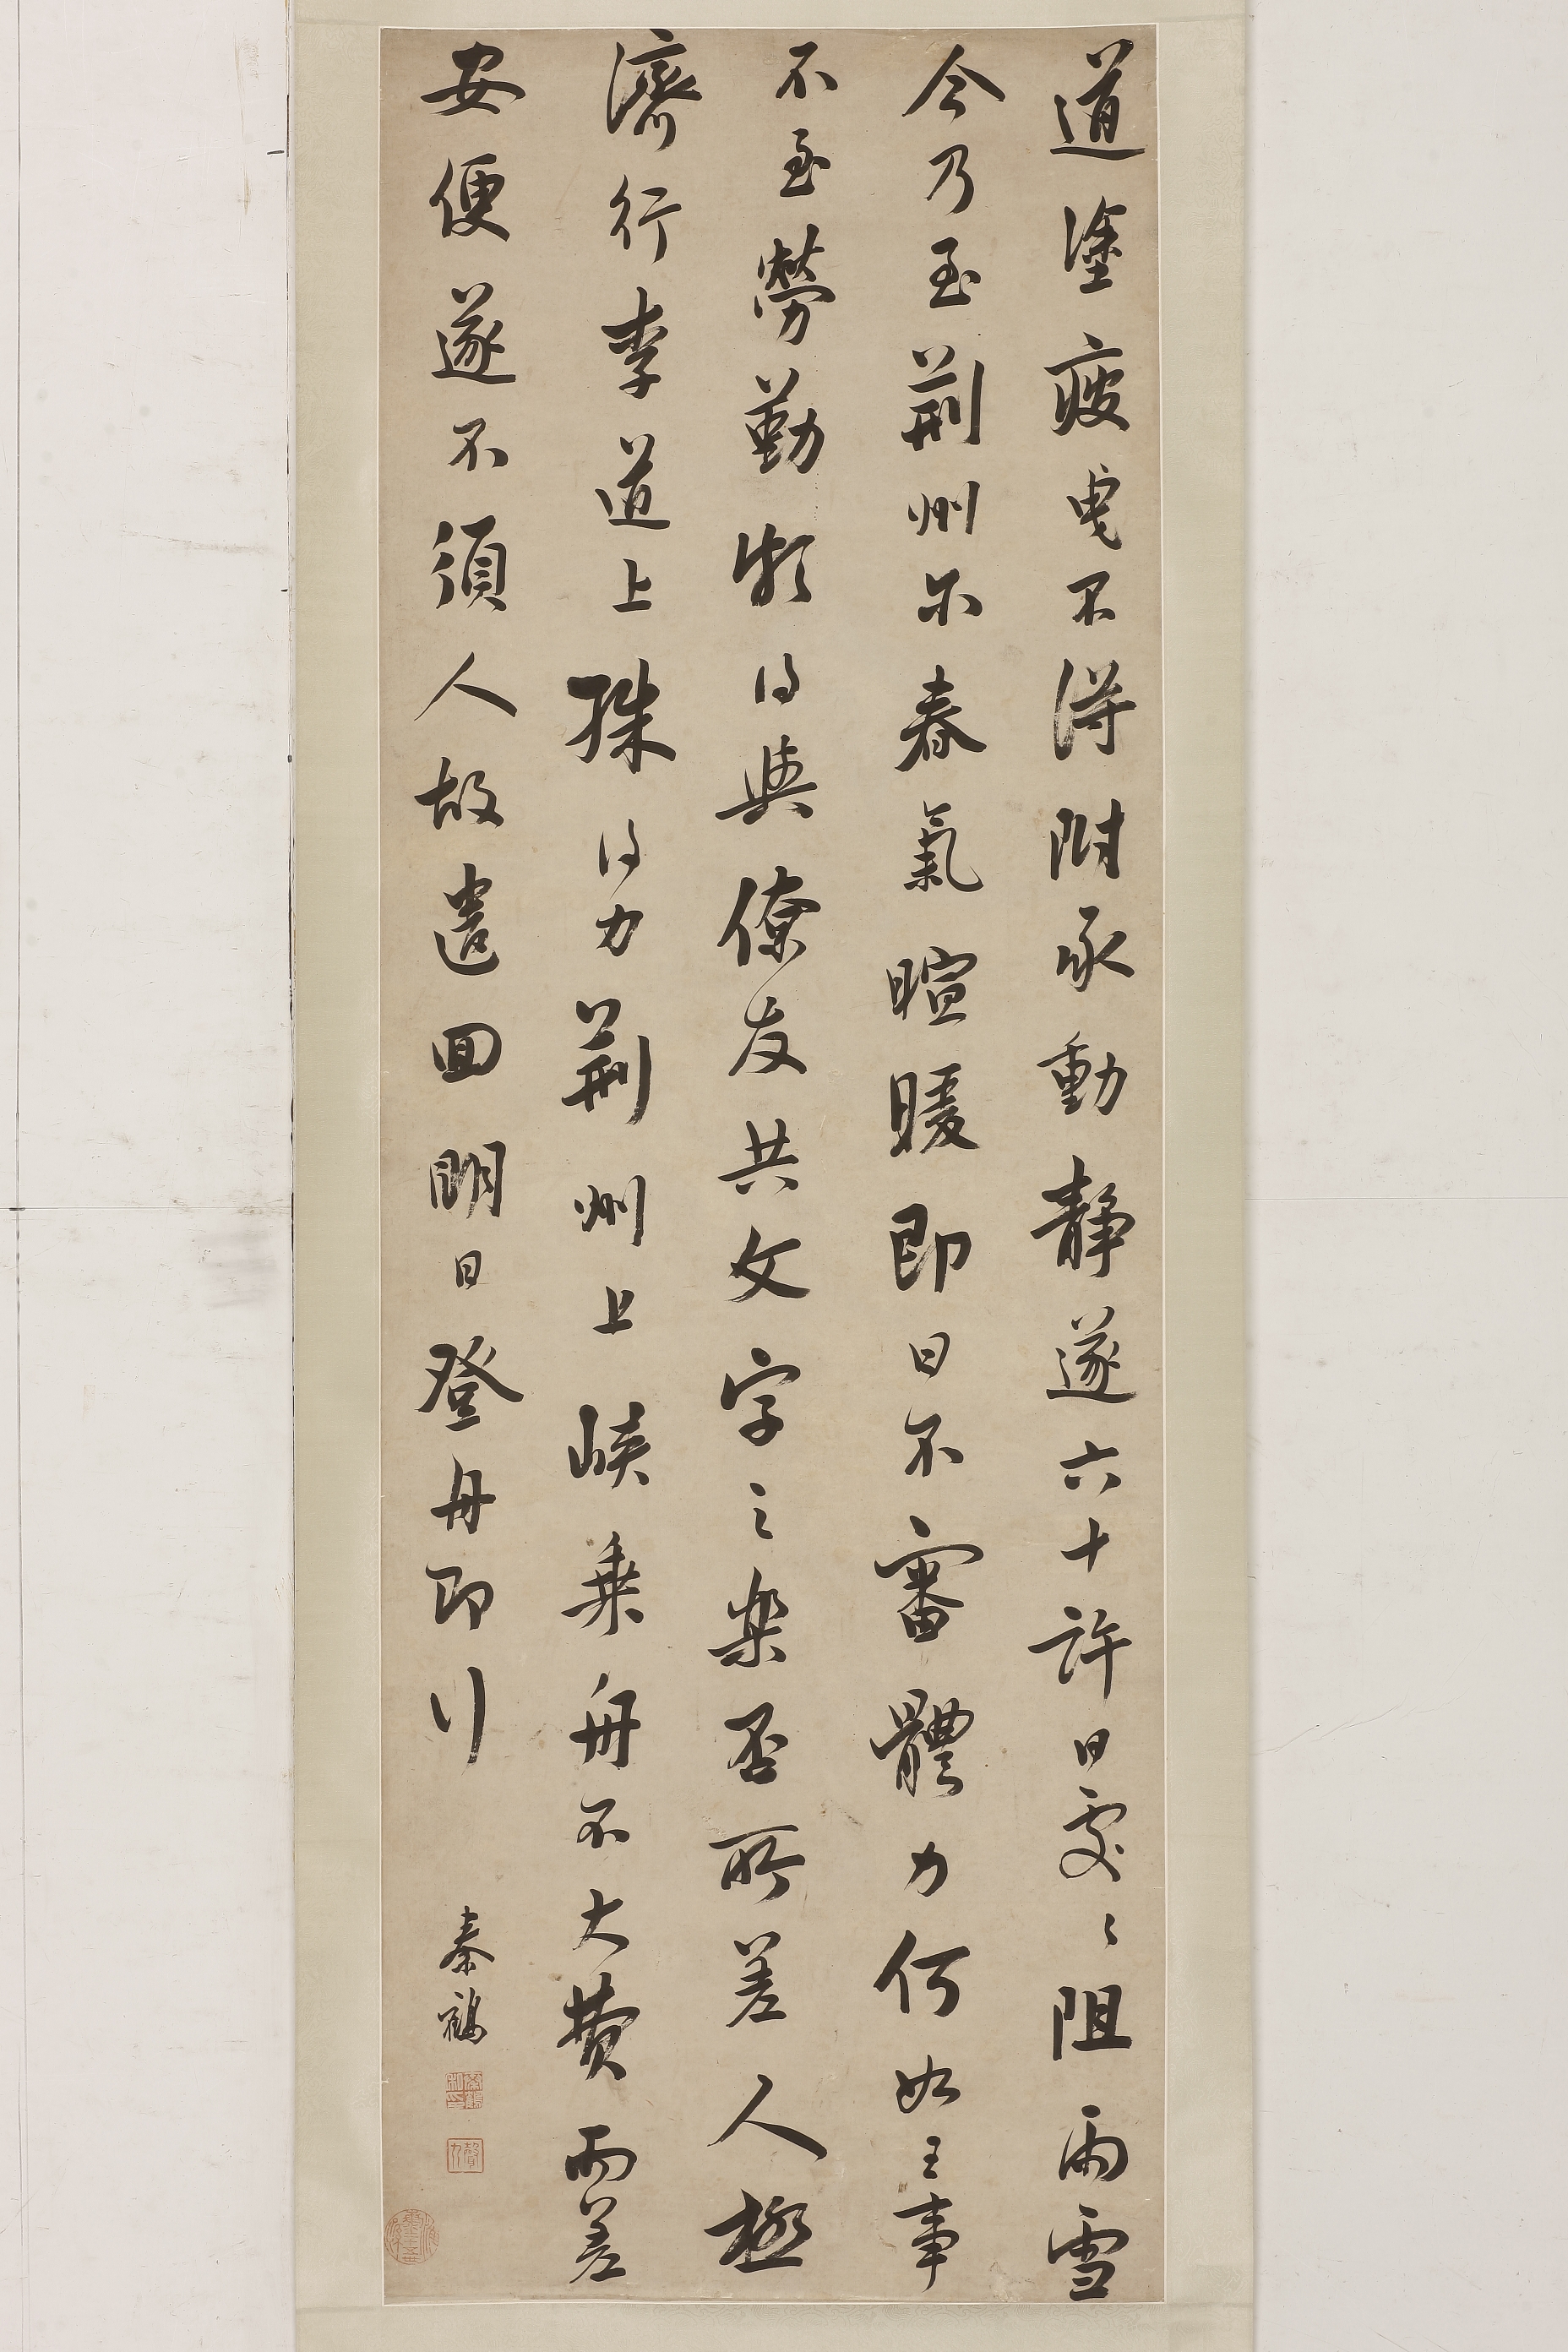 道塗疲曳不得附承動靜遂六十許日處〻阻雨雪
今乃至荊州尓春氣暄暖即日不審體力何如王事
不至勞勤頻得與僚友共文字之樂否所差人極
濟行李道上殊得力荊州上峽乗舟不大費而差
安便遂不須人故遣回明日登舟即行
泰鶴